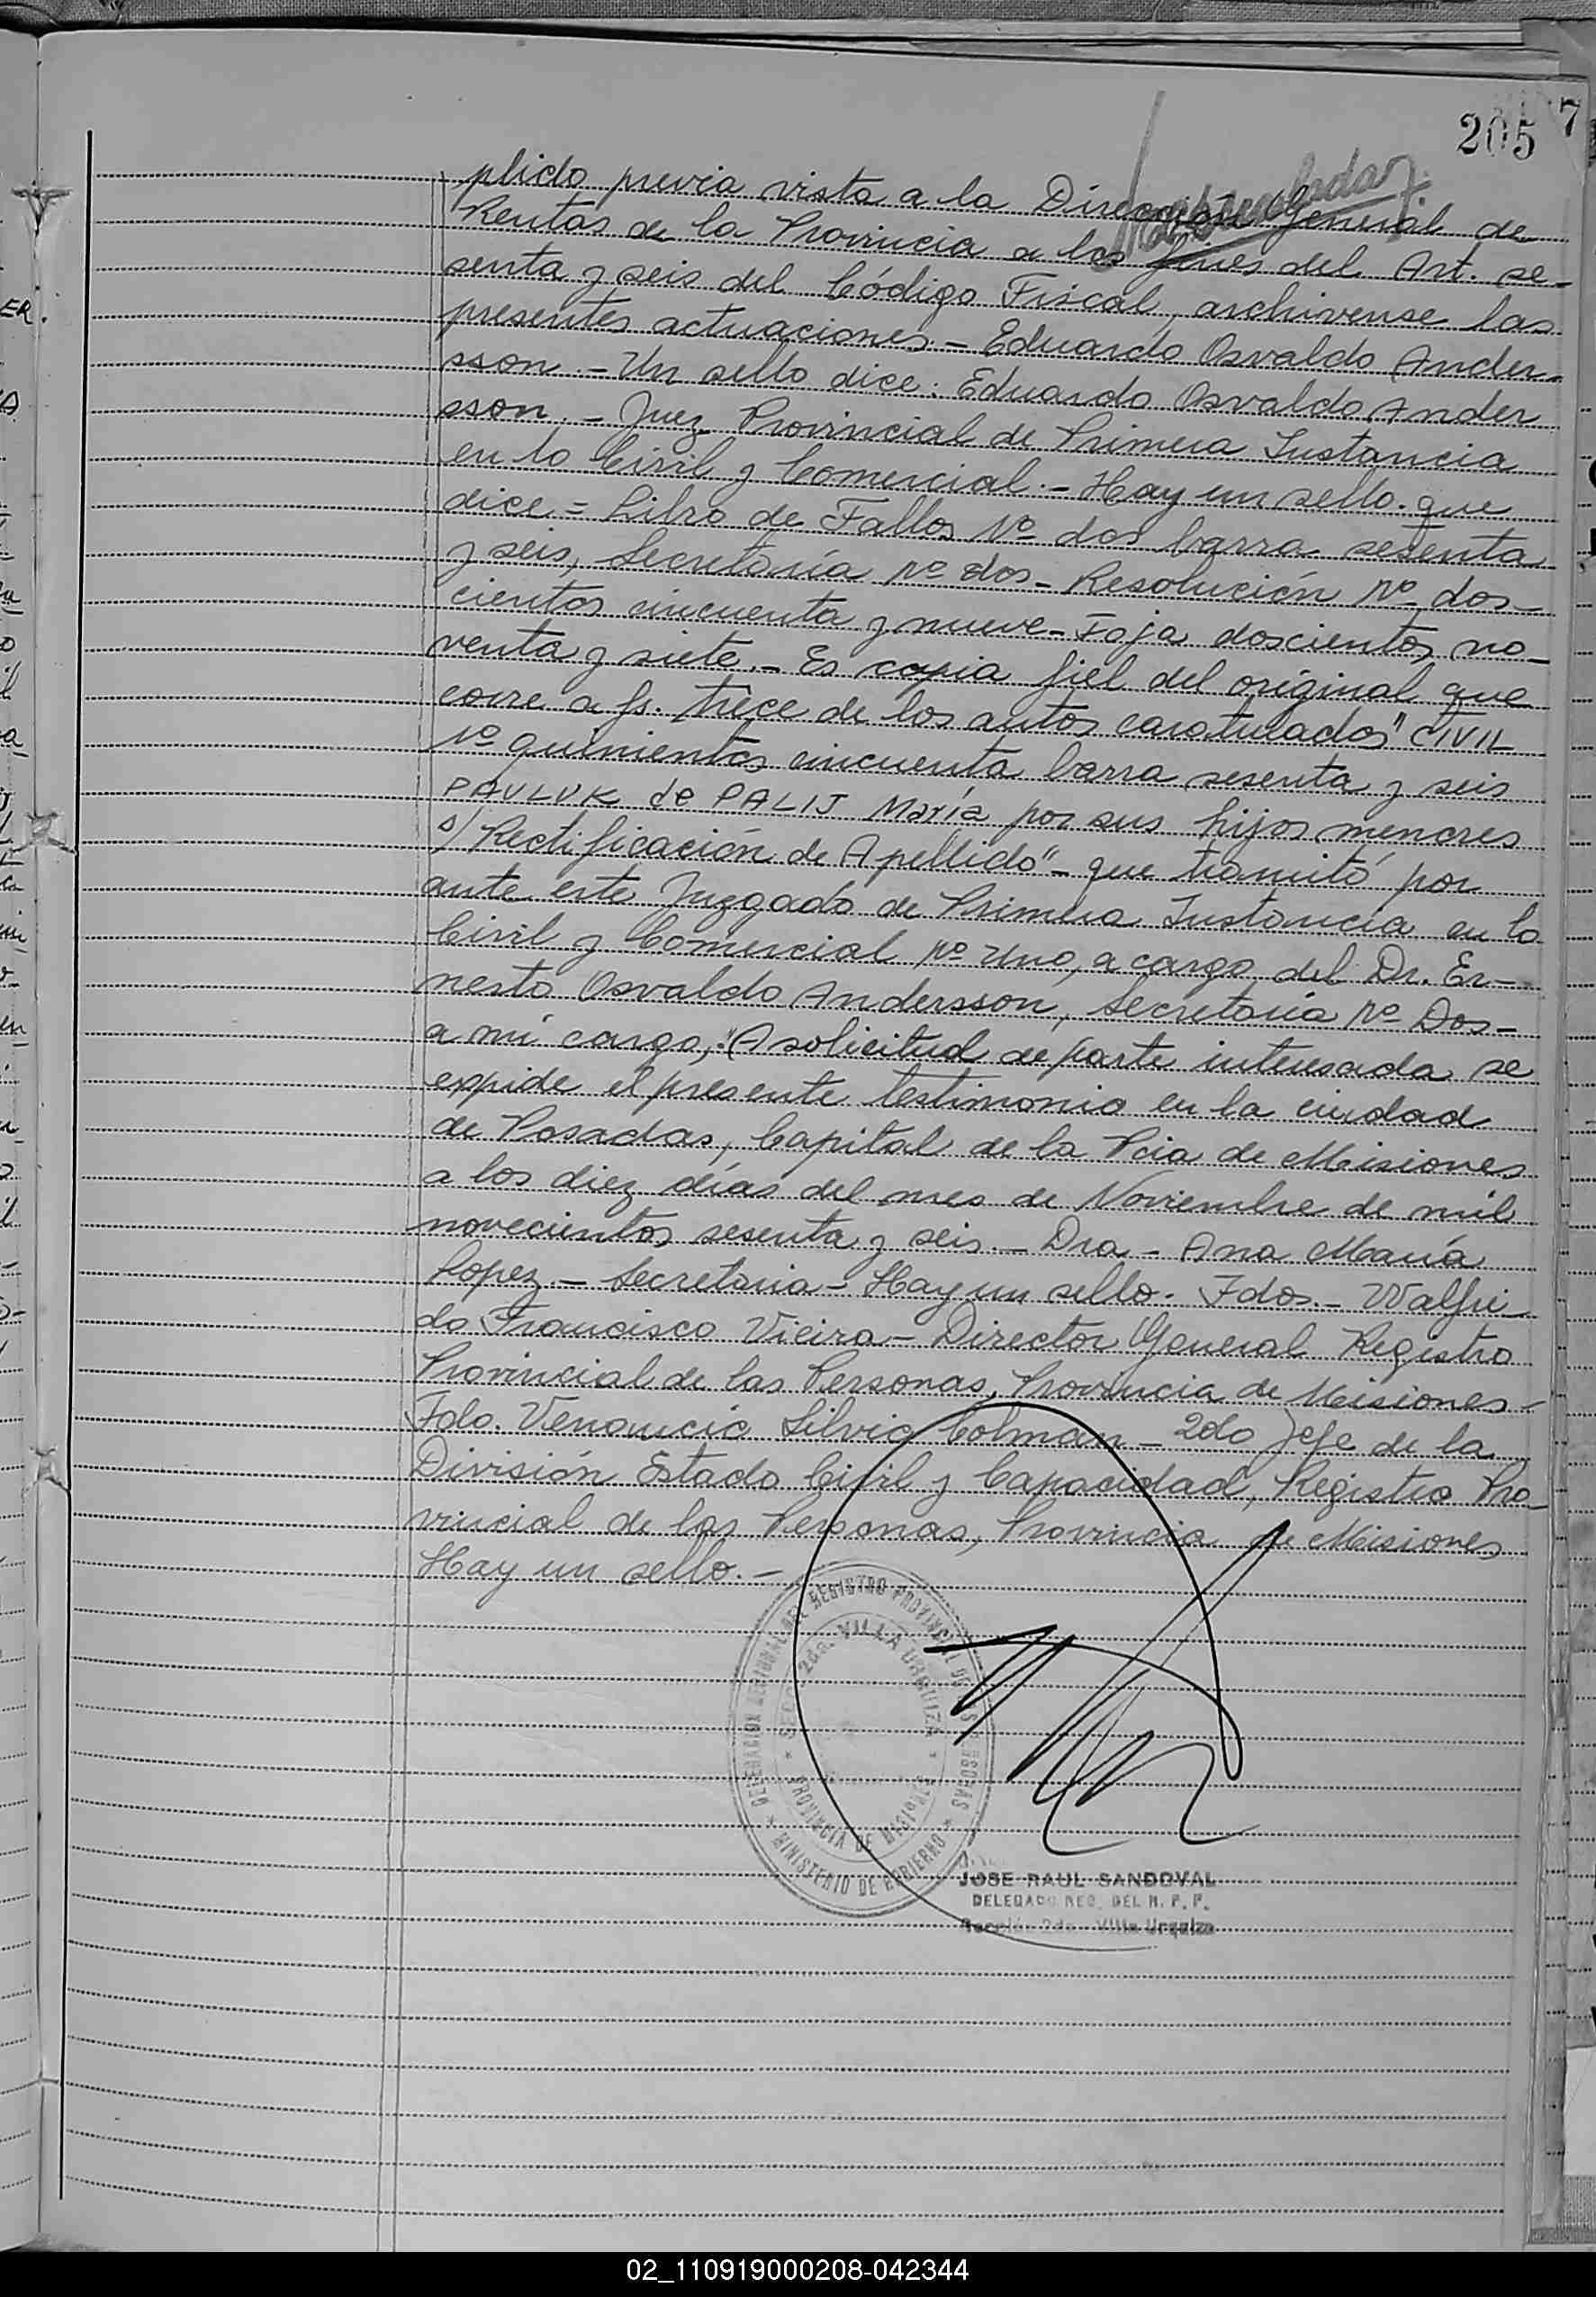 205 7
plido, previa vista a la Dirección General de
Rentas de la Provincia a los fines del Art. se-
senta y seis del Código Fiscal, archivense las
presentes actuaciones.- Eduardo Osvaldo Ander-
sson.- Un sello dice: Eduardo Osvaldo Ander
sson.- Juez Provincial de Primera Instancia
en lo Civil y Comercial.- Hay un sello que
dice = Libro de Fallos Nº dos barra sesenta
y seis, Secretaría Nº dos- Resolución Nº dos-
cientos cincuenta y nueve- Foja doscientos no-
venta y siete.- Es copia fiel del original que
corre a fs. trece de los autos caratulados "CIVIL
Nº quinientos cincuenta barra sesenta y seis
PAULUK de PALIJ María por sus hijos menores
s/ Rectificación de Apellido"- que tramitó por
ante este Juzgado de Primera Instancia en lo
Civil y Comercial Nº Uno, a cargo del Dr. Er-
nesto Osvaldo Andersson, Secretaría Nº Dos-
a mi cargo,. A solicitud de parte interesada se
expide el presente testimonio en la ciudad
de Posadas, Capital de la Pcia de Misiones
a los diez días del mes de Noviembre de mil
novecientos sesenta y seis.- Dra- Ana María
Lopez.- Secretaria- Hay un sello. Fdos.- Walfri-
do Francisco Vieira- Director General Registro
Provincial de las Personas, Provincia de Misiones-
Fdo. Venancio Silvio Colman- 2do Jefe de la
División Estado Civil y Capacidad, Registro Pro-
vincial de las Personas, Provincia de Misiones
Hay un sello.-
DELEGACION REGIONAL DEL REGISTRO PROVINCIAL DE LAS PERSONAS
* MINISTERIO DE GOBIERNO *
SECC. 2da. VILLA URQUIZA
* PROVINCIA DE MISIONES *
JOSE RAUL SANDOVAL
DELEGADO REG. DEL R. P. P.
Sección 2da. Villa Urquiza
02_110919000208-042344